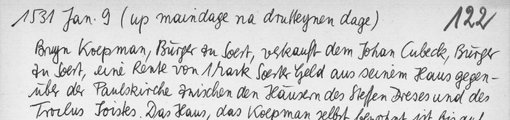 1531 Jan. 9 (up maindage na drutteynen dage) 122
Bruyn Koepman, Bürger zu Soest, verkauft dem Johan Cubeck, Bürger
zu Soest, eine Rente von 1 Mark Soester Geld aus seinem Haus gegen-
über der Paulskirche zwischen den Häusern des Steffen Dreses und des
Troclus Joistes. Das Haus, das Koepman selbst bewohnt ist bis auf